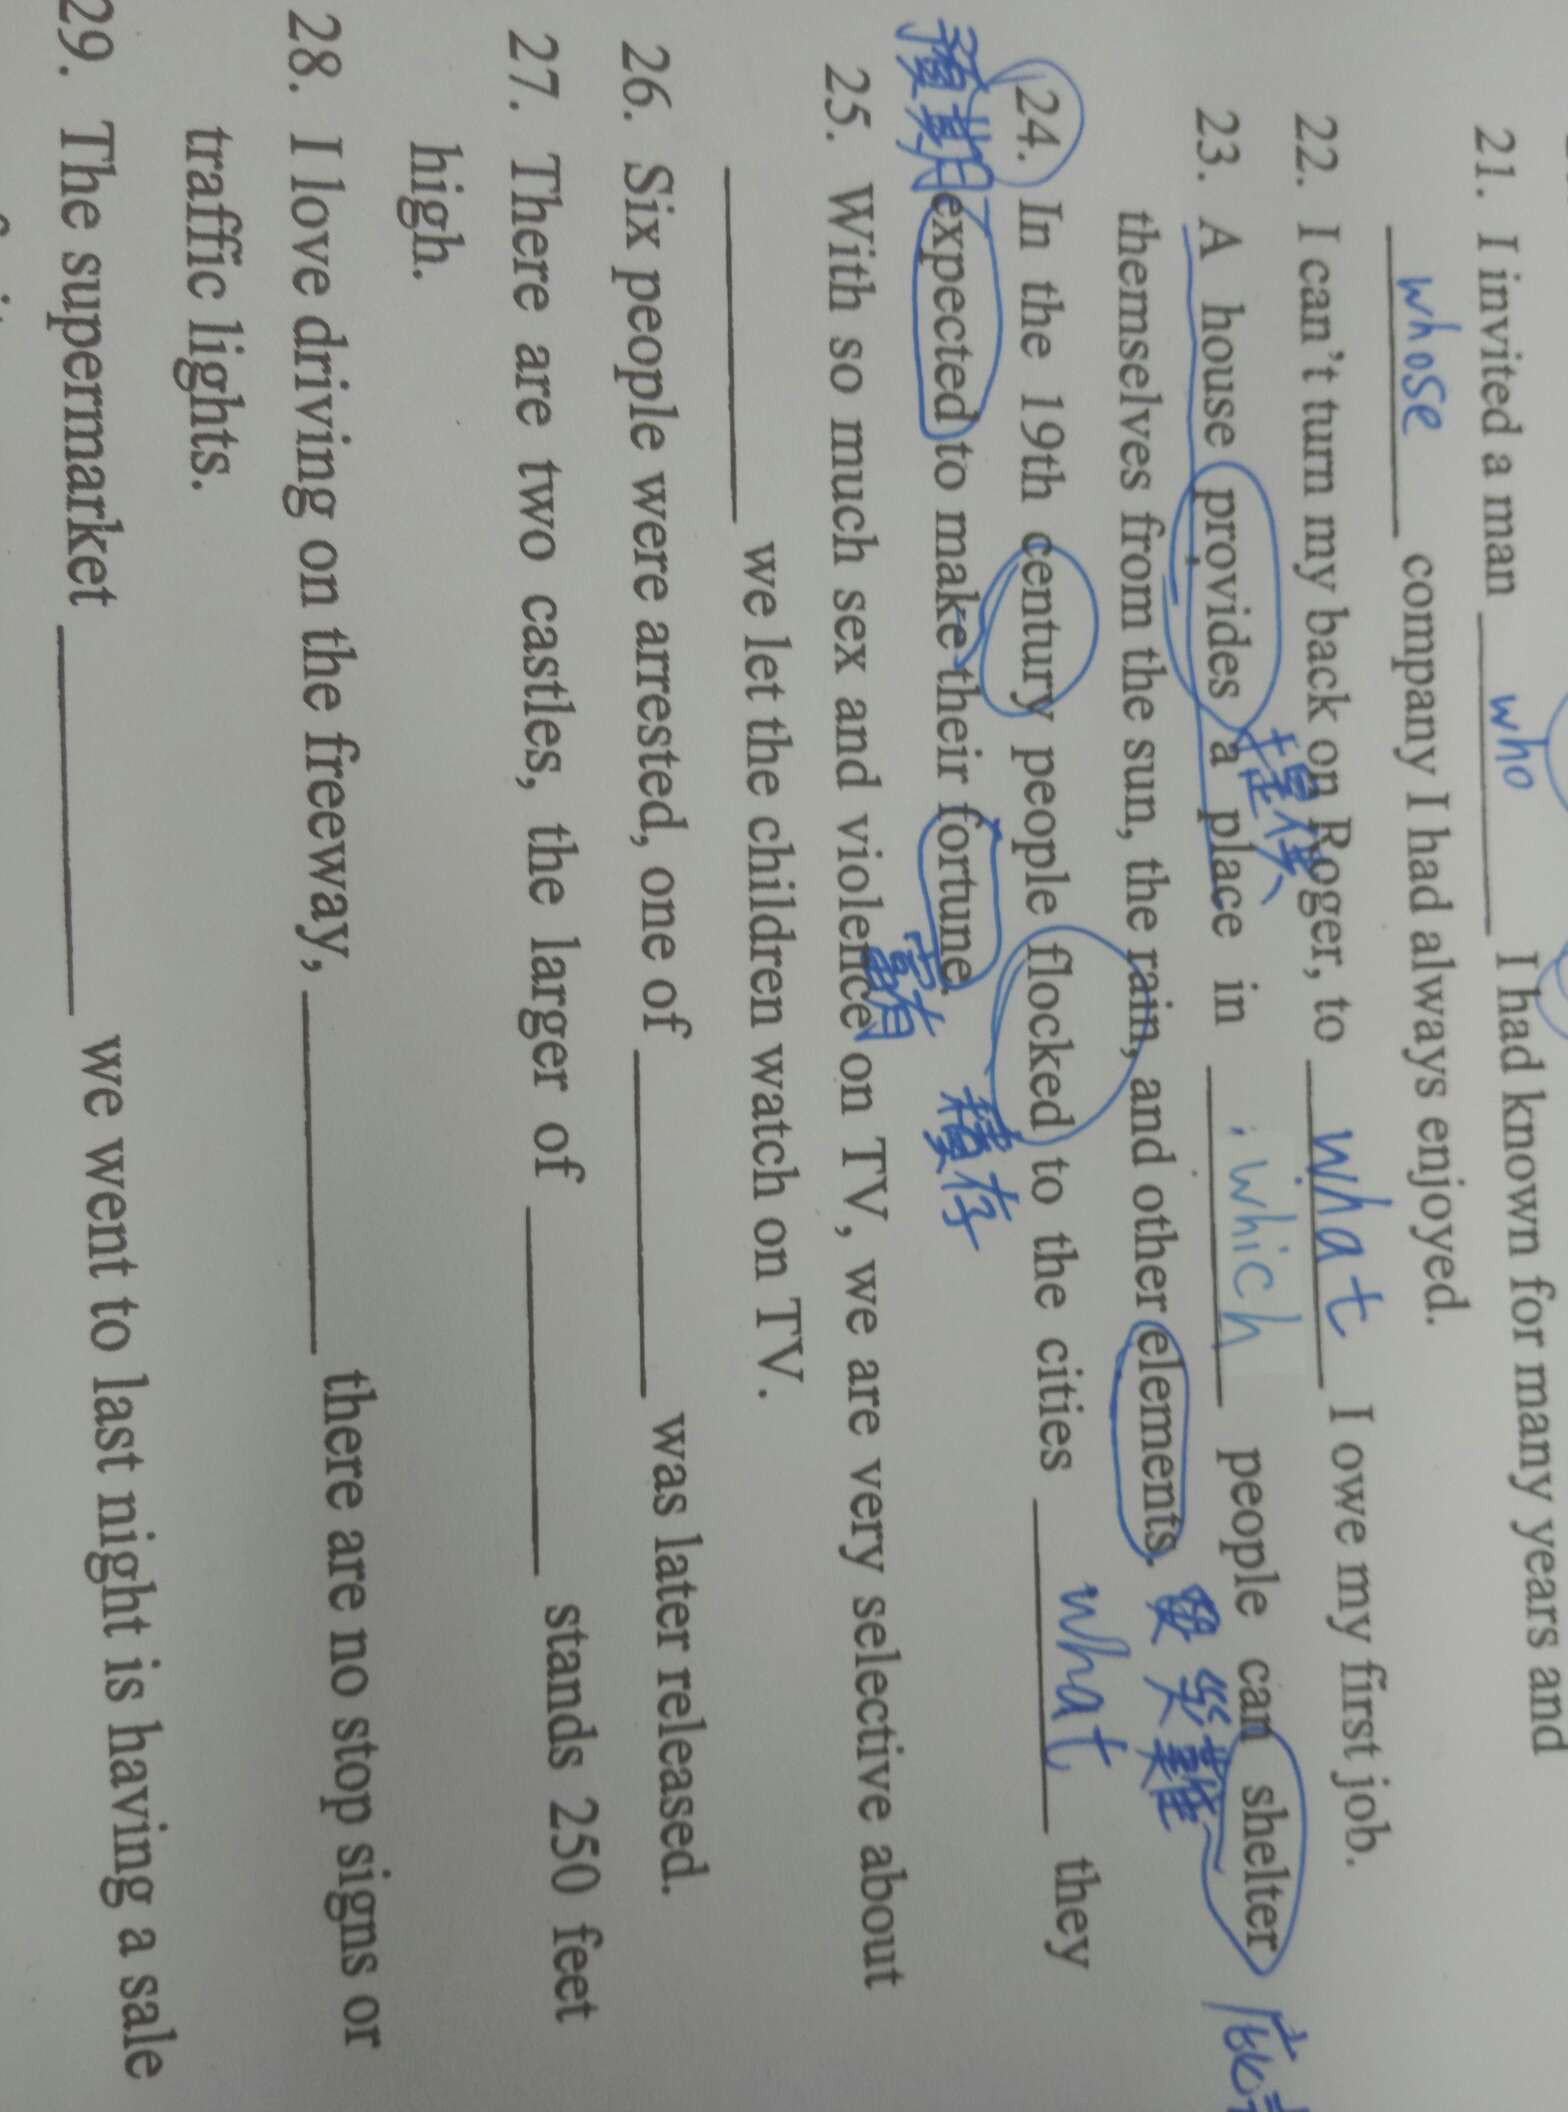 21. I invited a man who I had known for many years and
whose company I had always enjoyed.
22. I can't turn my back on Roger, to what I owe my first job.
提供
23. A house provides a place in which people can shelter
themselves from the sun, the rain, and other elements.
24. In the 19th century people flocked to the cities what they
預期 expected to make their fortune.
25. With so much sex and violence on TV, we are very selective about
we let the children watch on TV.
26. Six people were arrested, one of was later released.
27. There are two castles, the larger of stands 250 feet
high.
28. I love driving on the freeway, there are no stop signs or
traffic lights.
29. The supermarket we went to last night is having a sale